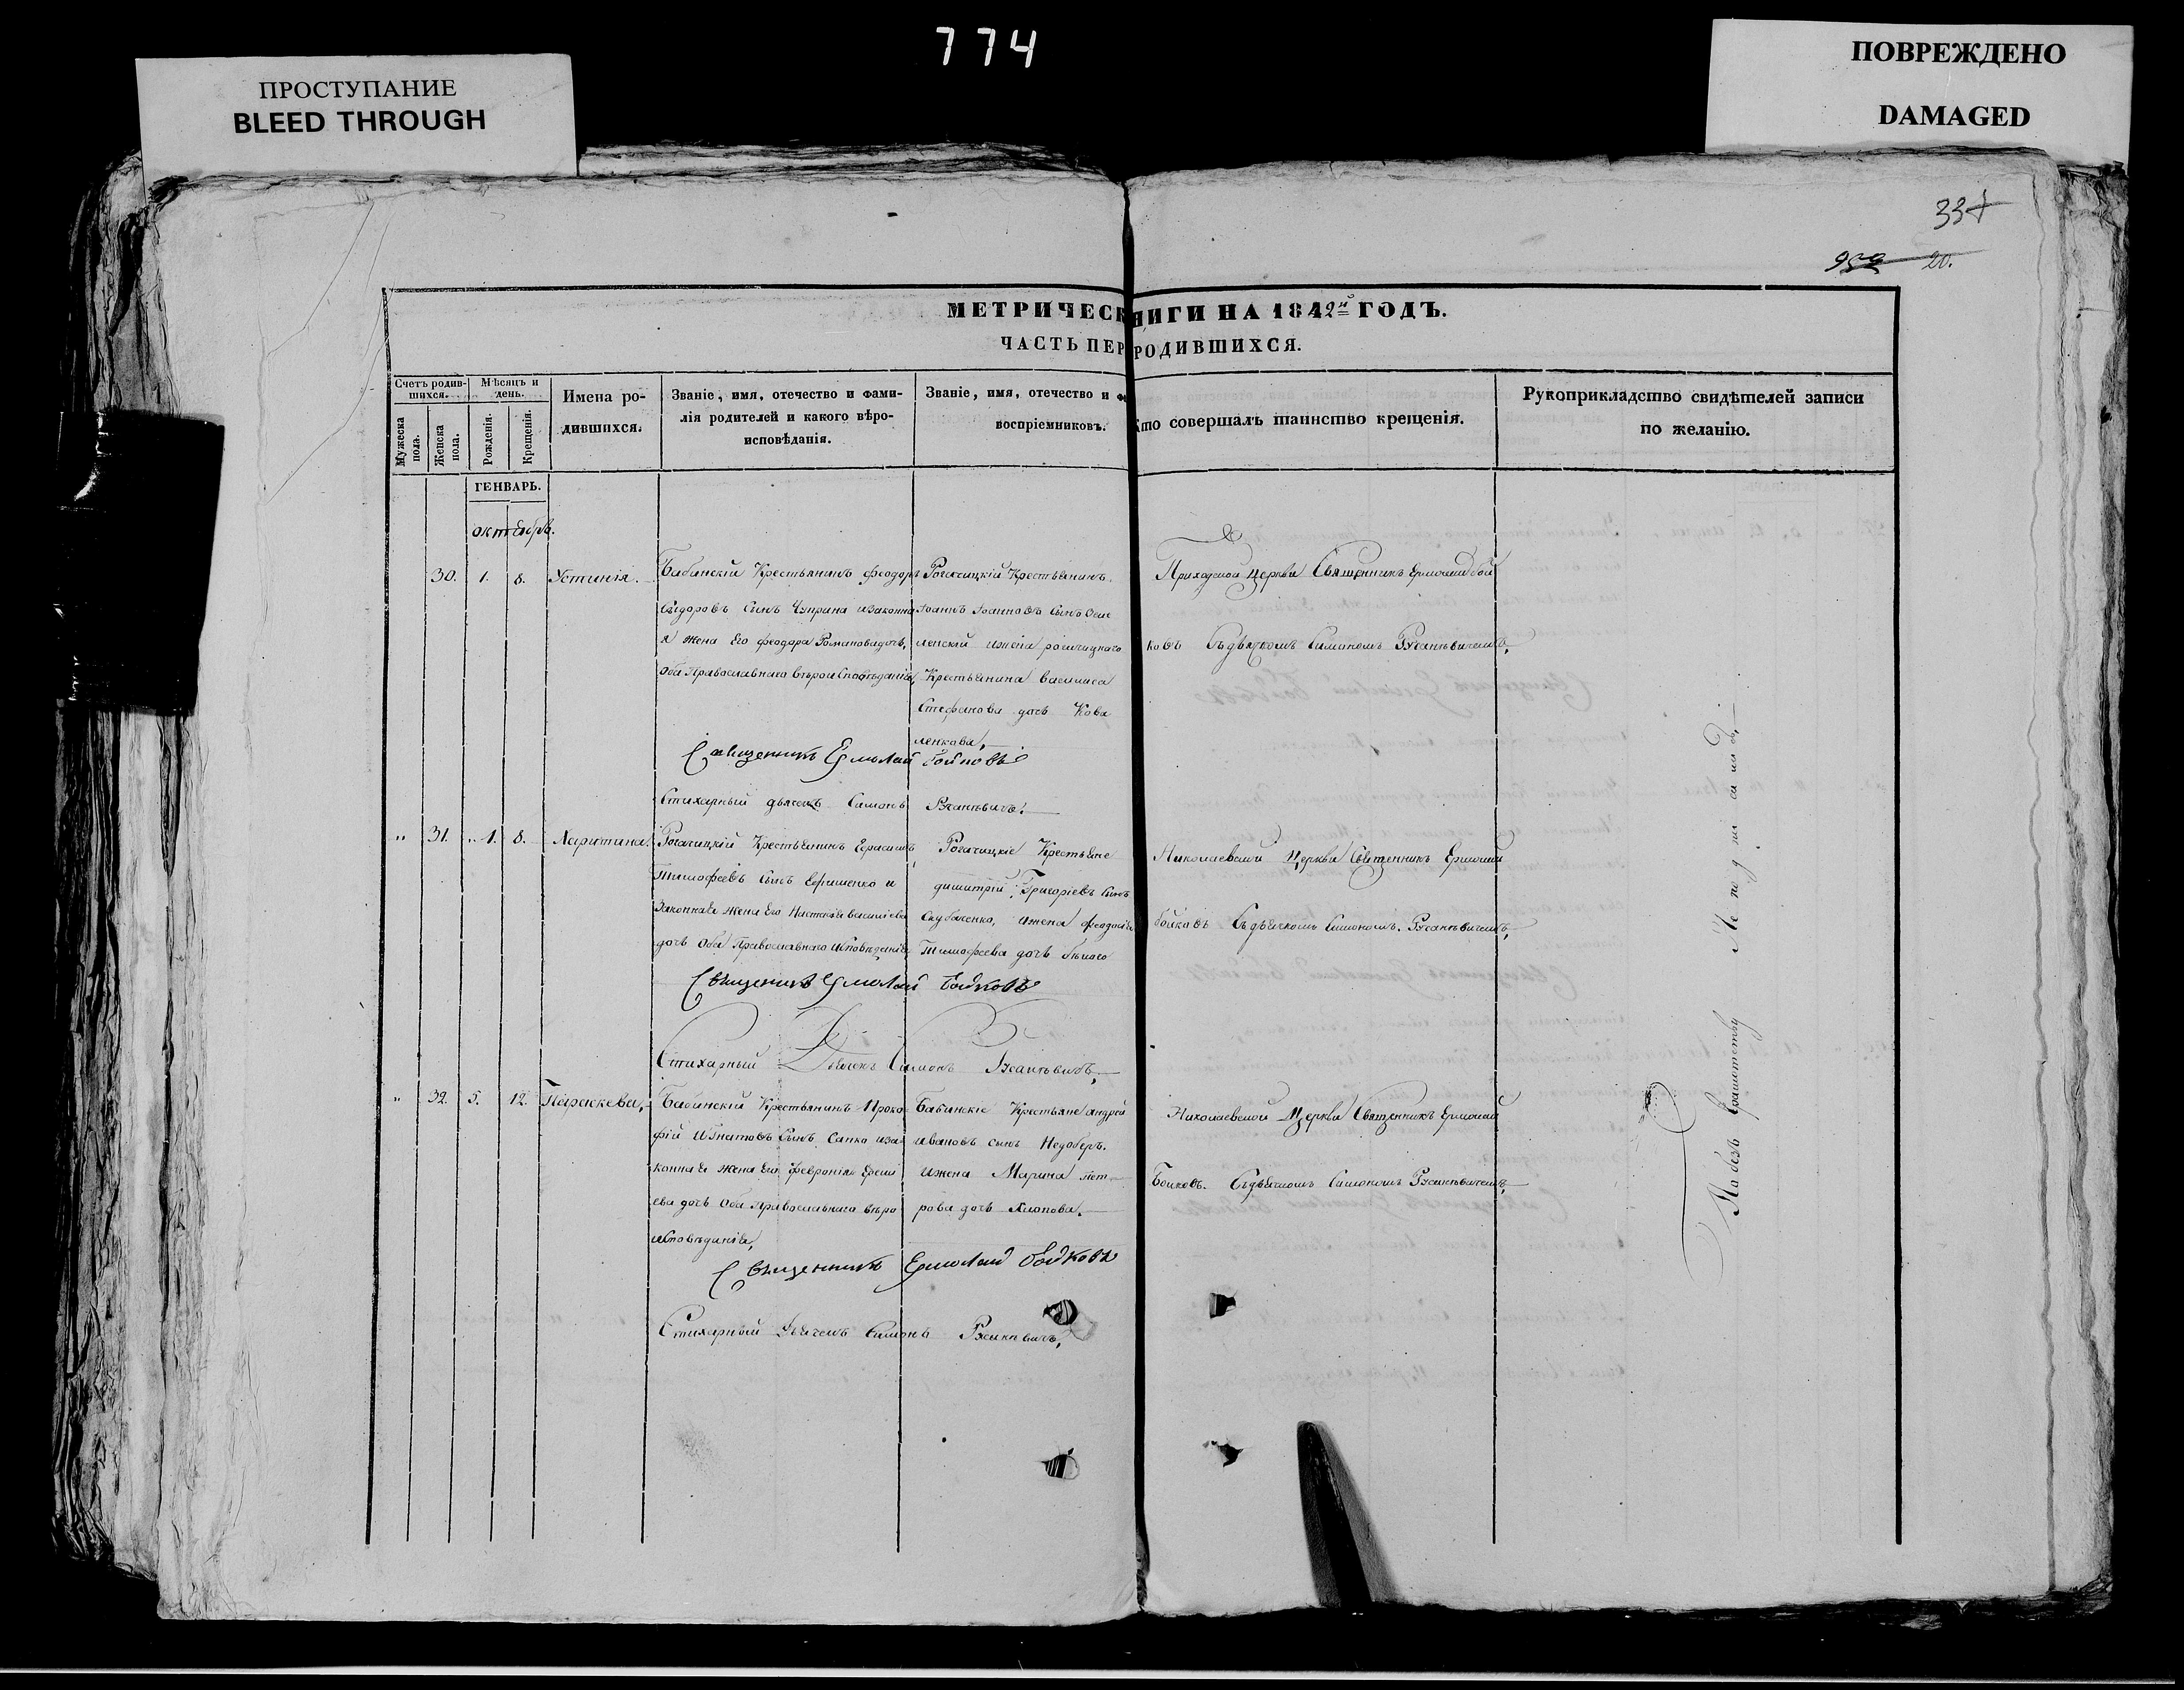 774
ПРОСТУПАНИЕ
BLEED THROUGH
ПОВРЕЖДЕНО
DAMAGED
20.
МЕТРИЧЕСК НИГИ НА 1842й ГОДЪ.
ЧАСТЬ ПЕР РОДИВШИХСЯ.
Счетъ родив-
шихся.
Мужеска пола.
Женска пола.
Мѣсяцъ и
день.
Рожденія.
Крещенія.
Имена ро-
дившихся.
Званіе, имя, отечество и фами-
лія родителей и какого вѣро-
исповѣданія.
Званіе, имя, отечество и ф
воспріемниковъ.
Кто совершалъ таинство крещенія.
Рукоприкладство свидѣтелей записи
по желанію.
ГЕНВАРЬ.
октябрь.
30. 1. 8. Устинія.
Бабинскій Крестьянинъ феодоръ
Сидоровъ Сынъ Чуприна изаконна
я жена Его феодора Романовадочь,
оба Православнаго вѣроисповѣданія,
Рогачицкій Крестьянинъ
Іоаннъ Іоанновъ Сынъ
ленскій ижена рогачицкаго
Крестьянина василиса
Стефанова дочь Кова
ленкова,
Приходской Церкви Священникъ Ермолай бой
ковъ Съдьячкомъ Симономъ
Священникъ Ермолай бойковъ
Стихарный дьячекъ Симонъ
" 31. 1. 8. Харитина.
Рогачицкій Крестьянинъ Герасимъ
Тимофеевъ Сынъ Ефименко и
Законная жена Его Настасія василіева
дочь Оба Православнаго исповѣданія
Рогачицкіе Крестьяне
димитрій Григоріевъ Сынъ
ижена феодосія
Тимофеева дочь
Николаевской Церкви Священникъ Ермолай
бойковъ Съдьячкомъ Симономъ
Священникъ Ермолай Бойковъ
Стихарный Дьячекъ Симонъ
" 32. 5. 12. Параскева,
Бабинскій Крестьянинъ Проко
фій Игнатовъ Сынъ Сапко иза
конная жена Его февронія Ереми
ева дочь Оба Православнаго вѣро
исповѣданія,
Бабинскіе Крестьяне андрей
ивановъ сынъ Недоберъ.
ижена Марина пет
рова дочь Хлопова.
Николаевской Церкви Священникъ Ермолай
Бойковъ. Съдьячкомъ Симономъ
Священникъ Ермолай Бойковъ
Стихарный Дьячекъ Симонъ